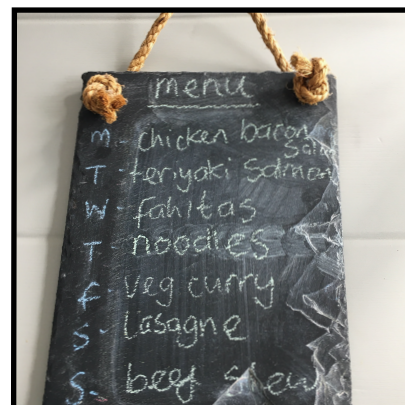 menu
M - chicken bacon
Salad
T - teriyaki salmon
W - fahitas
T noodles
F - veg curry
S - lasagne
S - beef stew